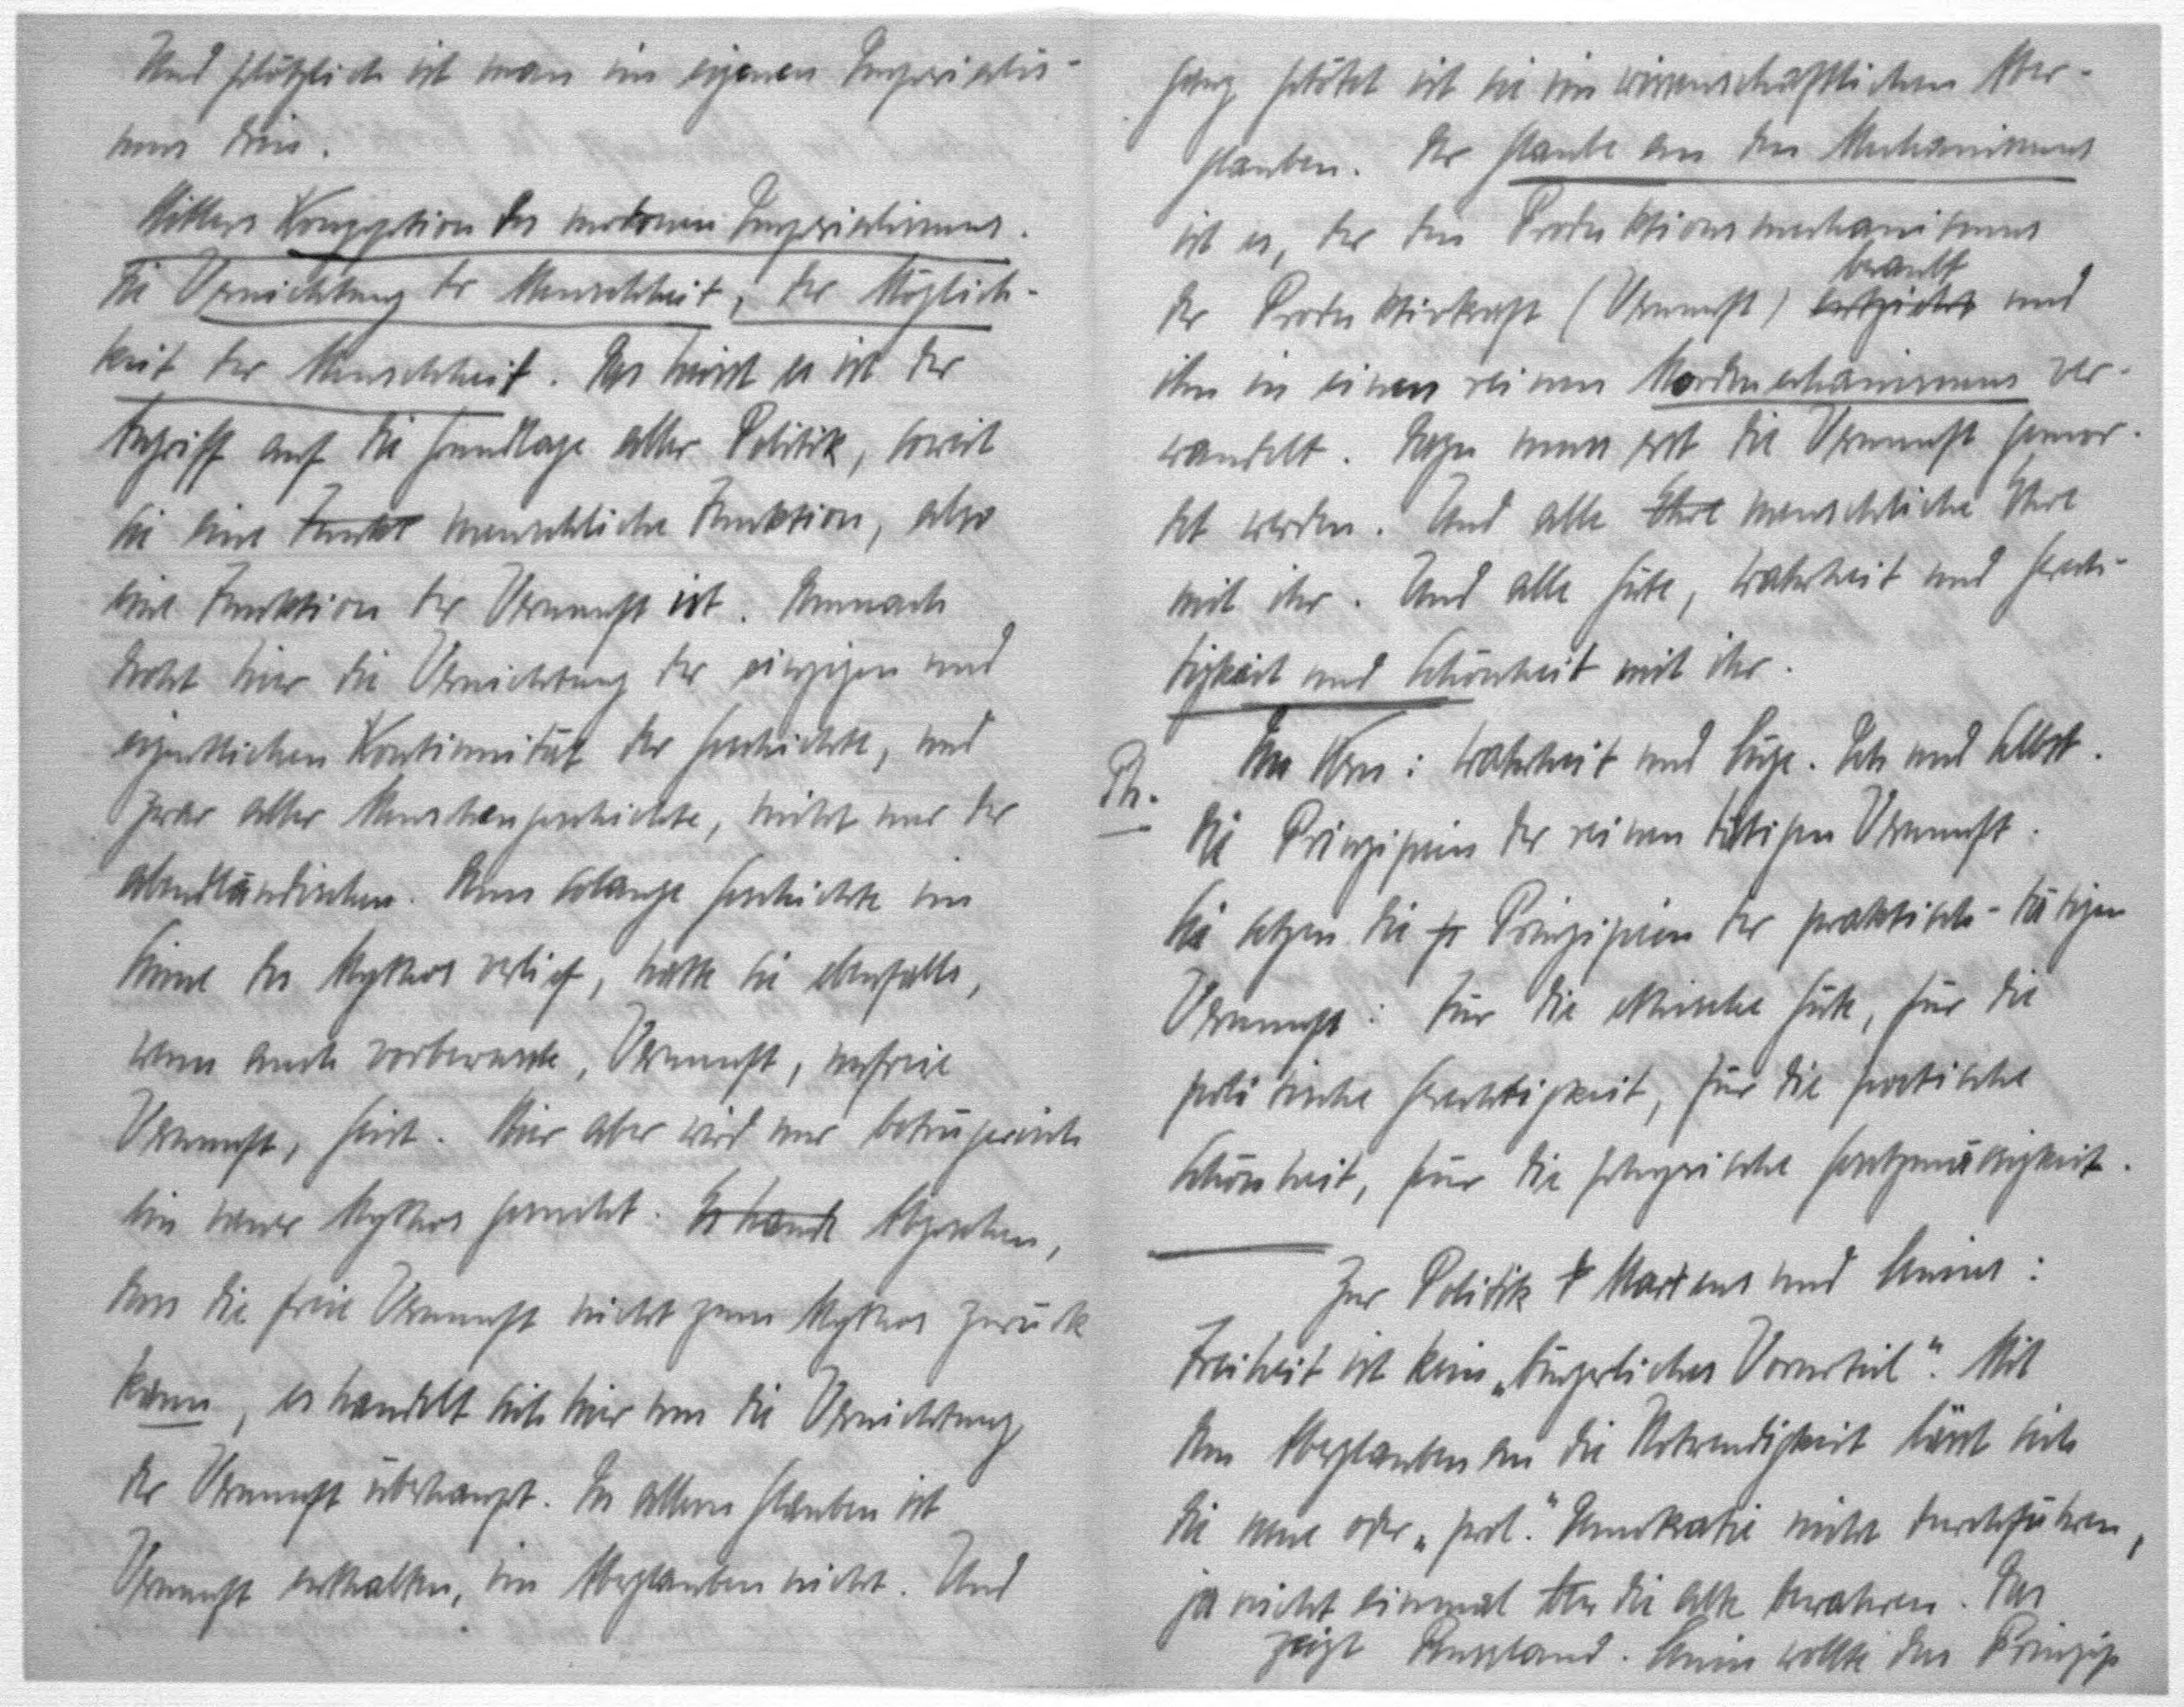 Und plötzlich ist man im eigenen Imperialis-
mus drin.
Hitlers Konzeption des modernen Imperialismus.
Die Vernichtung der Menschheit, der Möglich-
keit der Menschheit. Das heisst es ist der
Angriff auf die Grundlage aller Politik, soweit
sie eine Funkt menschliche Funktion, also
eine Funktion der Vernunft ist. Demnach
droht hier die Vernichtung der einzigen und
eigentlichen Kontinuität der Geschichte, und
zwar aller Menschengeschichte, nicht nur der
abendländischen. Denn solange Geschichte im
Sinne des Mythos verlief, hatte sie ebenfalls,
wenn auch vorbewusste, Vernunft, unfreie
Vernunft, Geist. Hier aber wird nur betrügerisch
ein neuer Mythos gemacht. Es hande Abgesehen,
dass die freie Vernunft nicht zum Mythos zurück
kann, es handelt sich hier um die Vernichtung
der Vernunft überhaupt. In allem Glauben ist
Vernunft enthalten, im Aberglauben nicht. Und
ganz getötet ist sie im wissenschaftlichen Aber-
glauben. Der Glaube an den Mechanismus
ist es, der den Produktionsmechanismus
beraubt
der Produktivkraft (Vernunft) und
ihn in einen reinen Mordmechanismus ver-
wandelt. Dazu muss erst die Vernunft gemor-
det werden. Und alle Ehre menschliche Ehre
mit ihr. Und alle Güte, Wahrheit und Gerech-
tigkeit und Schönheit mit ihr.
Im Kern: Wahrheit und Lüge. Ich und Selbst.
Ph.
Die Prinzipien der reinen tätigen Vernunft.
Sie setzen die Prinzipien der praktisch-tätigen
Vernunft: Für die ethische Güte, für die
politische Gerechtigkeit, für die poetische
Schönheit, für die Gesetzmässigkeit.
Zur Politik Marxens und Lenins:
Freiheit ist kein „bürgerliches Vorurteil". Mit
dem Aberglauben an die Notwendigkeit lässt sich
die neue oder „prol." Demokratie nicht durchführen,
ja nicht einmal die alte bewahren. Das
zeigt Russland. Lenin wollte das Prinzip